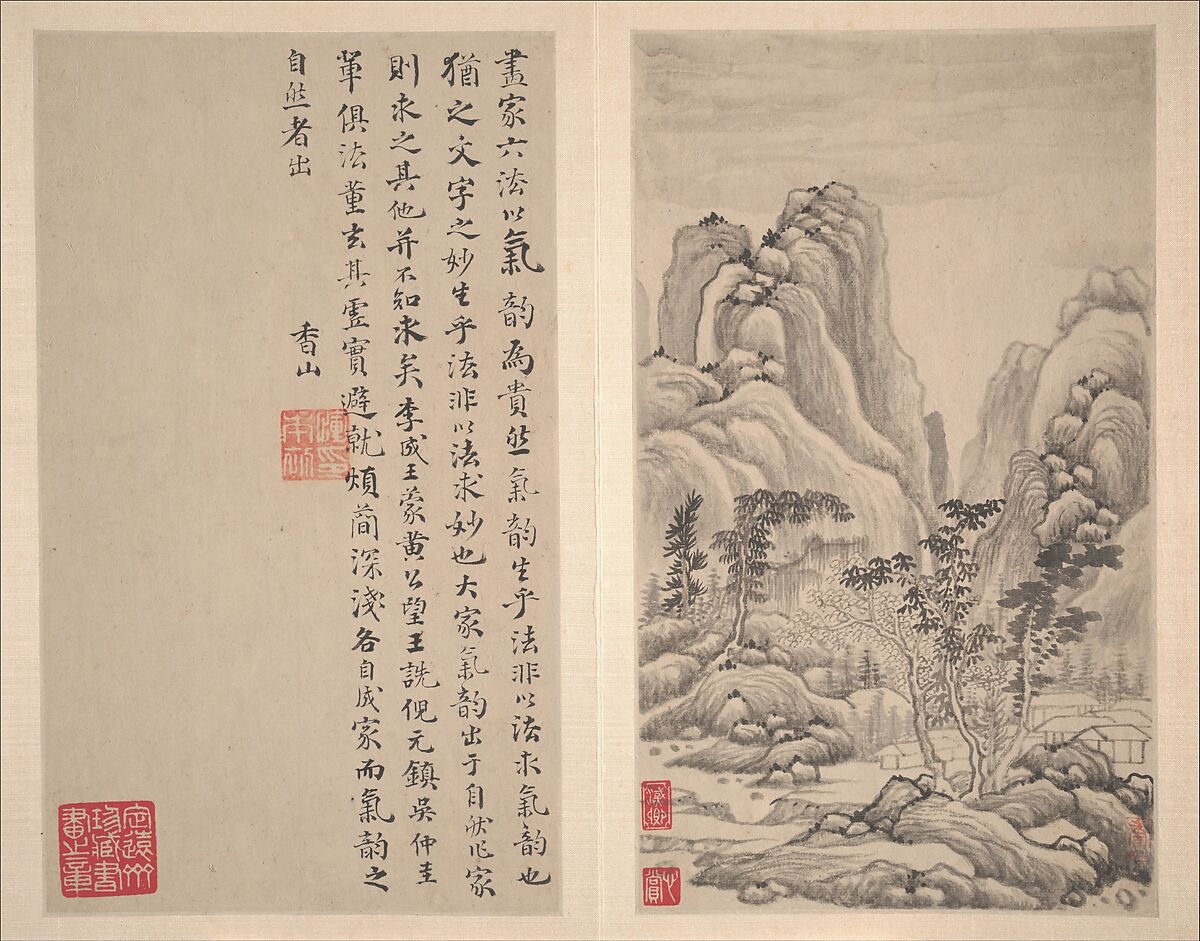 畫家六法以氣韵為貴然氣韵生乎法非以法求氣韵也
猶之文字之妙生乎法非以法求妙也大家氣韵出于自然作家
則求之其他并不知求矣李成王蒙黄公望王詵倪元鎮吳仲圭
軰俱法董玄其虛實避就煩簡深淺各自成家而氣韵之
自然者出
香山